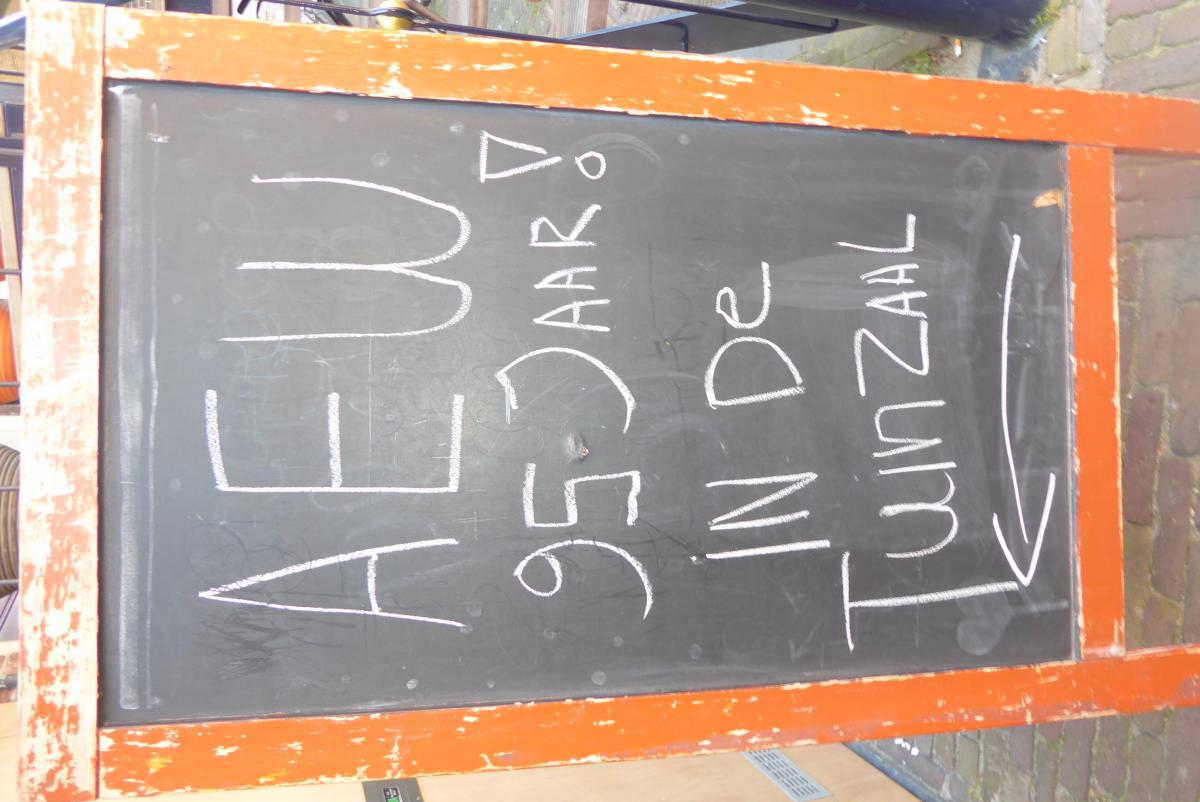 AEW
95 JAAR!
iN De
TUINZAAL